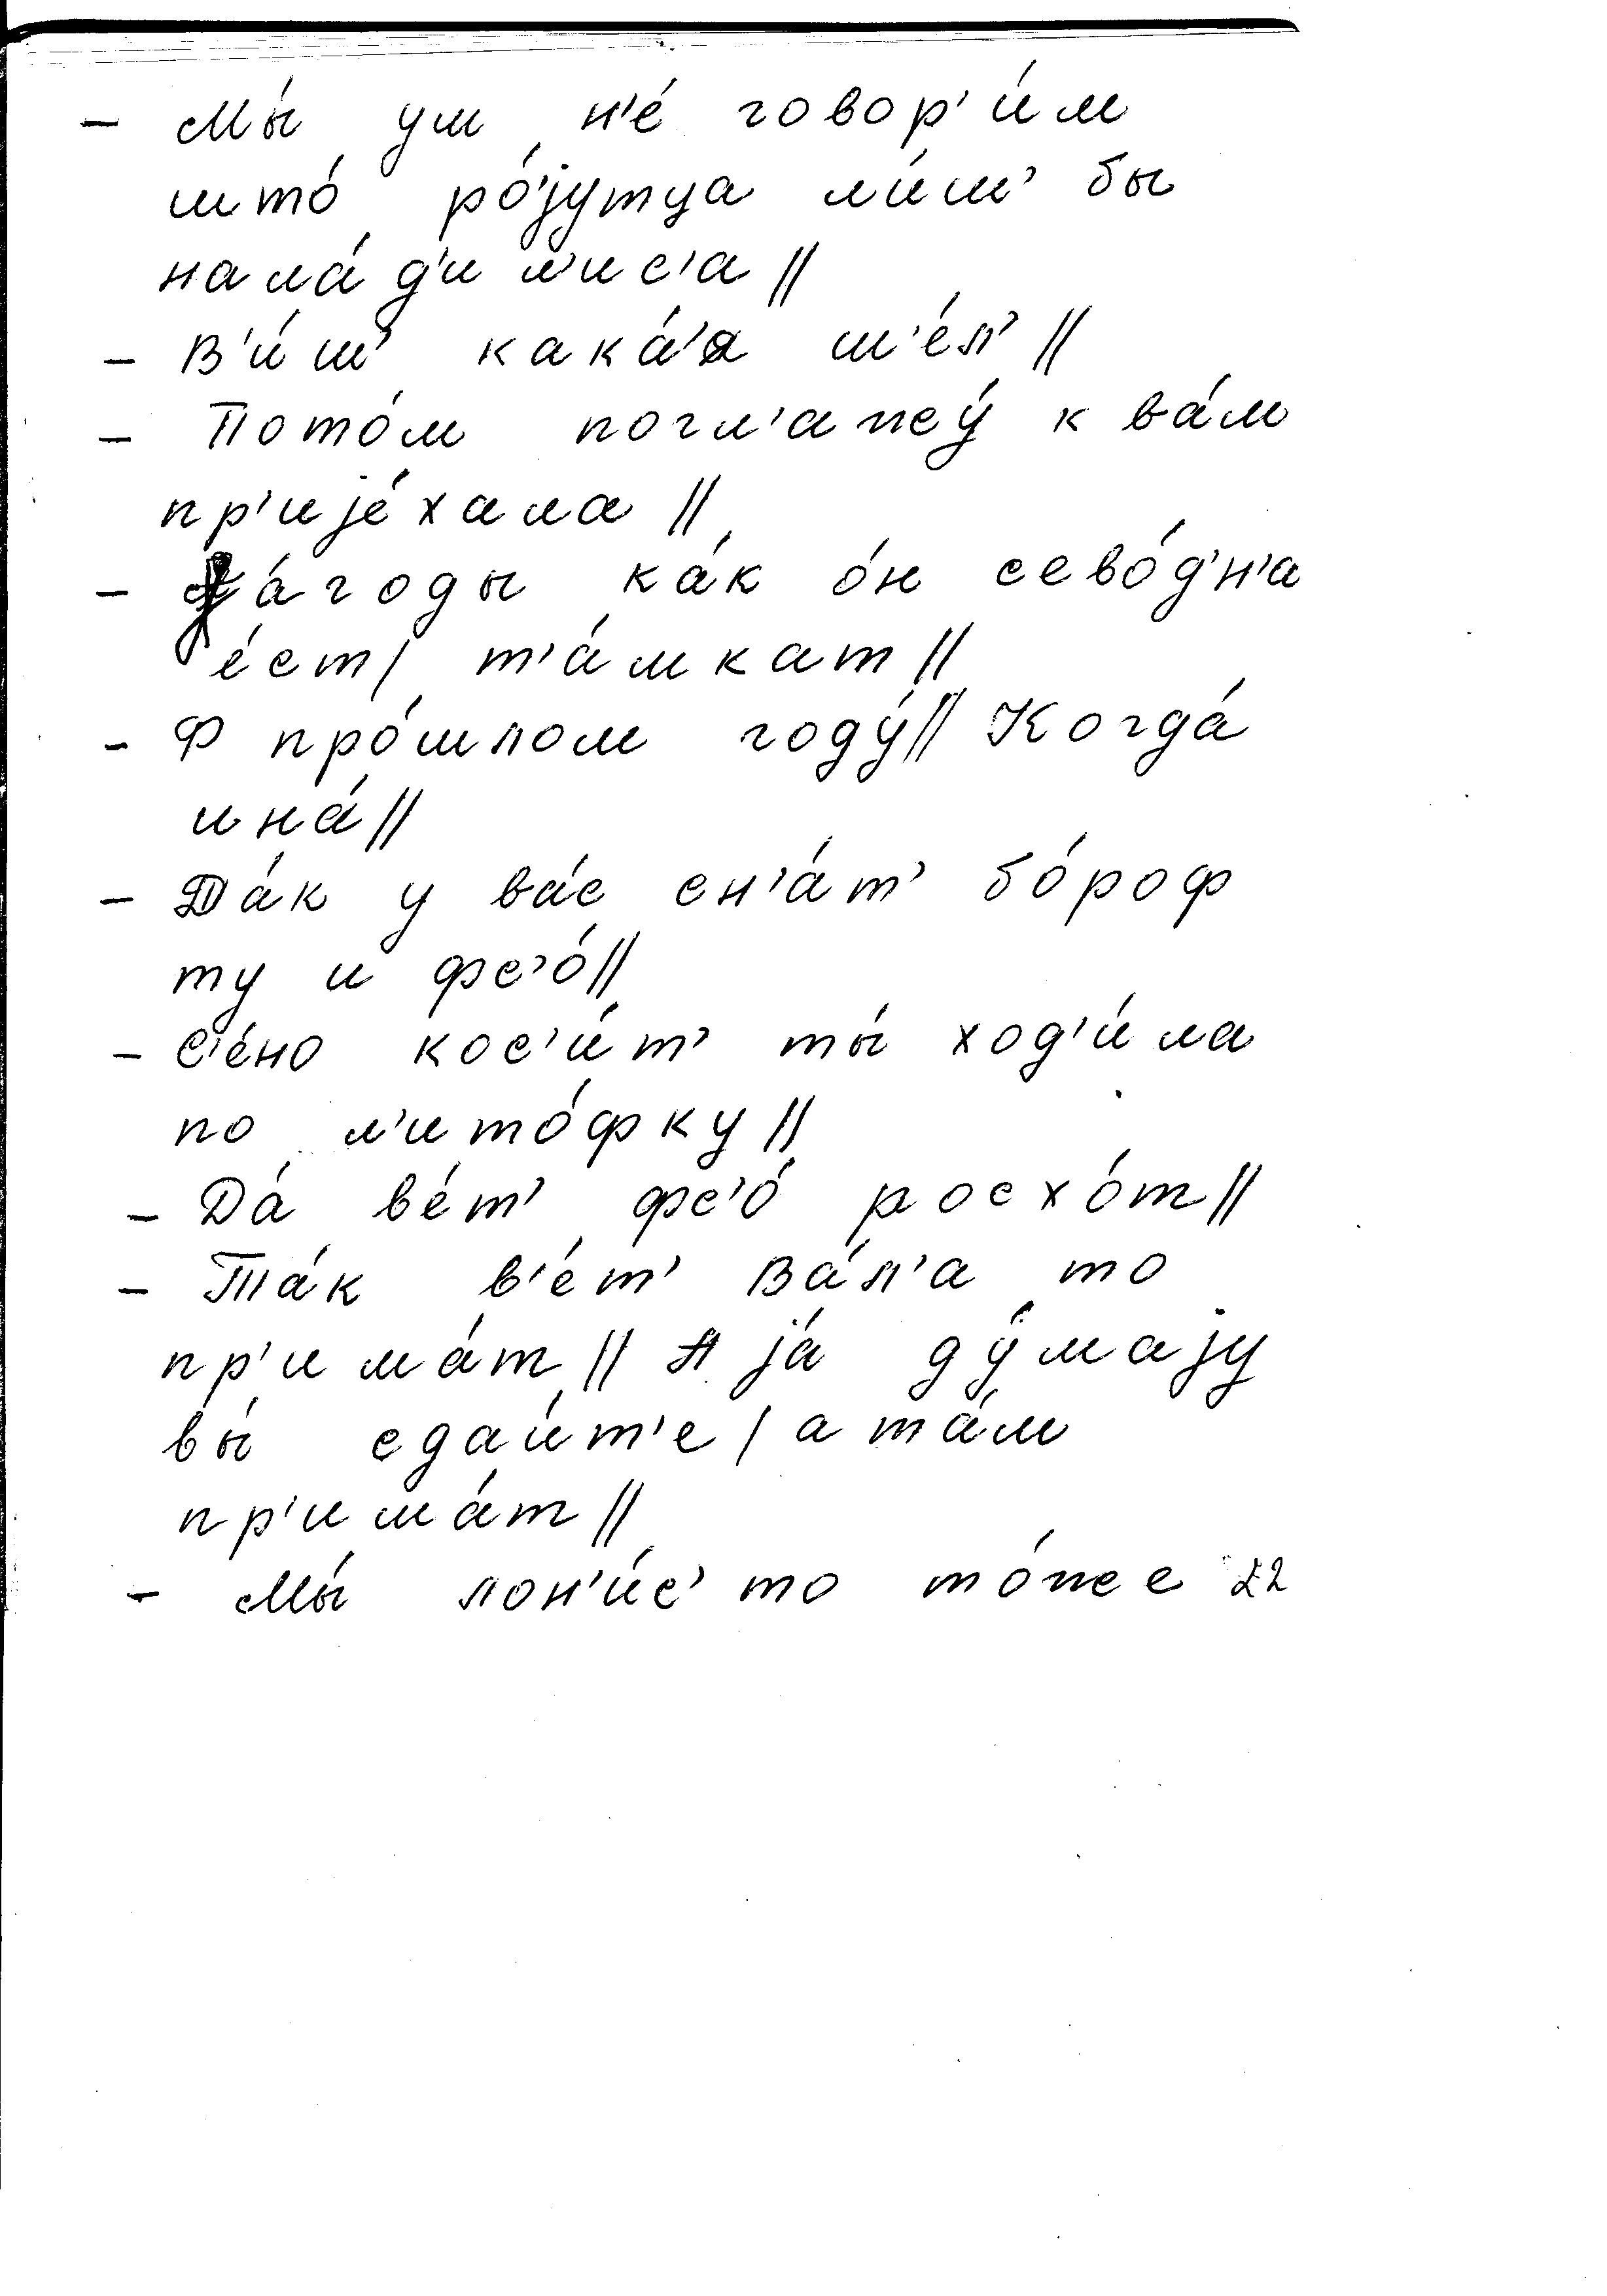 – Мы́ уш н'е́ говор'и́м
што́ ро́jутца ли́ш' бы
нала́д'ил'ис'а //
– В'и́ш' кака́'я ш'е́л' //
– Пото́м погл'ажу́ к ва́м
пр'иjе́хала //
– Jа́годы ка́к о́н сево́д'н'а
е́ст / т'а́мкат //
– Ф про́шлом году́ // Когда́
ина́ //
– Да́к у ва́с сн'а́т' бо́роф
ту и фс'о́ //
– С'е́но кос'и́т' ты́ ход'и́ла
по л'ито́фку //
– Да́ ве́т' фс'о́ росхо́т //
– Та́к в'е́т' Ва́л'а то
пр'има́т // А jа́ ду́маjу
вы́ сдаи́т'е / а та́м
пр'има́т //
– Мы́ лон'и́с' то то́же 22